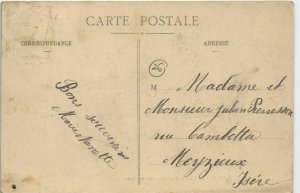 CARTE POSTALE
CORRESPONDANCE
ADRESSE
26
Bons souvenirs
M Madame et
Monsieur
rue Gambetta
Meyzieux
Isère